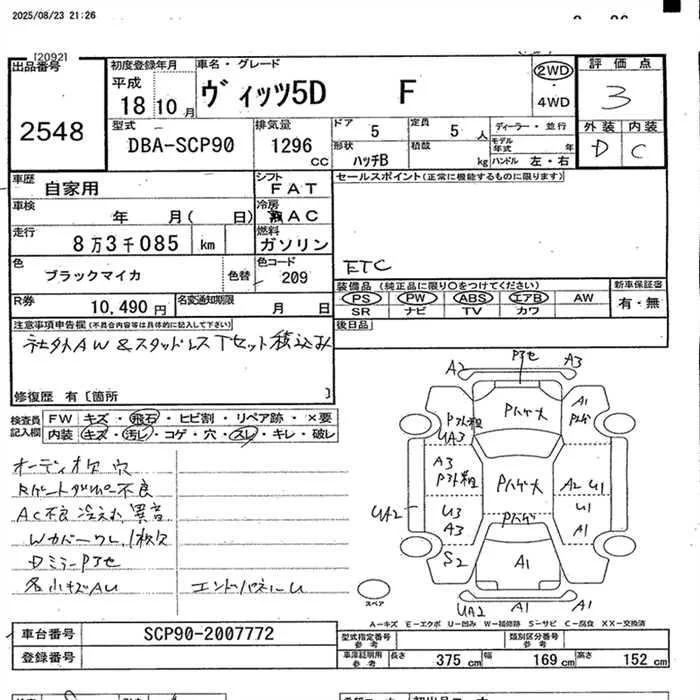 2025/08/23 21:26
[2092]
出品番号
2548
初度登録年月
平成
18 10月
車名・グレード
ヴィッツ5D F
2WD
・
4WD
評価点
3
外装 内装
D C
型式
DBA-SCP90
排気量
1296 CC
ドア 5
定員 5人
ディーラー・並行
モデル年式 年
形状 ハッチB
積載 kg
ハンドル 左・右
車歴 自家用
シフト FAT
車検 年 月( 日)
冷房 AC
走行 8万3千085 km
燃料 ガソリン
色 ブラックマイカ 色替
色コード 209
R券 10,490円
名変通知期限 月 日
セールスポイント(正常に機能するものに限ります)
ETC
装備品(純正品に限り○をつけてください)
PS PW ABS エアB AW
SR ナビ TV カワ
新車保証書
有・無
後日品
注意事項申告欄(不具合内容等は具体的に記入して下さい)
社外AW &スタッドレス下セット積込み
修復歴 有〔箇所 〕
検査員記入欄
FW キズ・飛石・ヒビ割・リペア跡・×要
内装 キズ・汚レ・コゲ・穴・スレ・キレ・破レ
オーディオ欠 穴
Rゲートダンパー不良
AC不良 冷えず、異音
Wカバーワレ、1枚欠
DミラーPアセ
各小キズAU
エンドパネルU
A2 Pアセ A3
Pハゲ大
A1
Pハゲ
UA3
A3
Pハゲ大
A2 U1
U3
A3
Pハゲ
U1
UA2
A1
S2
A1
UA2 A1 A1
スペア
A－キズ E－エクボ U－凹み W－補修跡 S－サビ C－腐食 XX－交換済
車台番号 SCP90-2007772
登録番号
型式指定番号 参考
類別区分番号 参考
車庫証明用 参考
長さ 375cm 幅 169cm 高さ 152cm